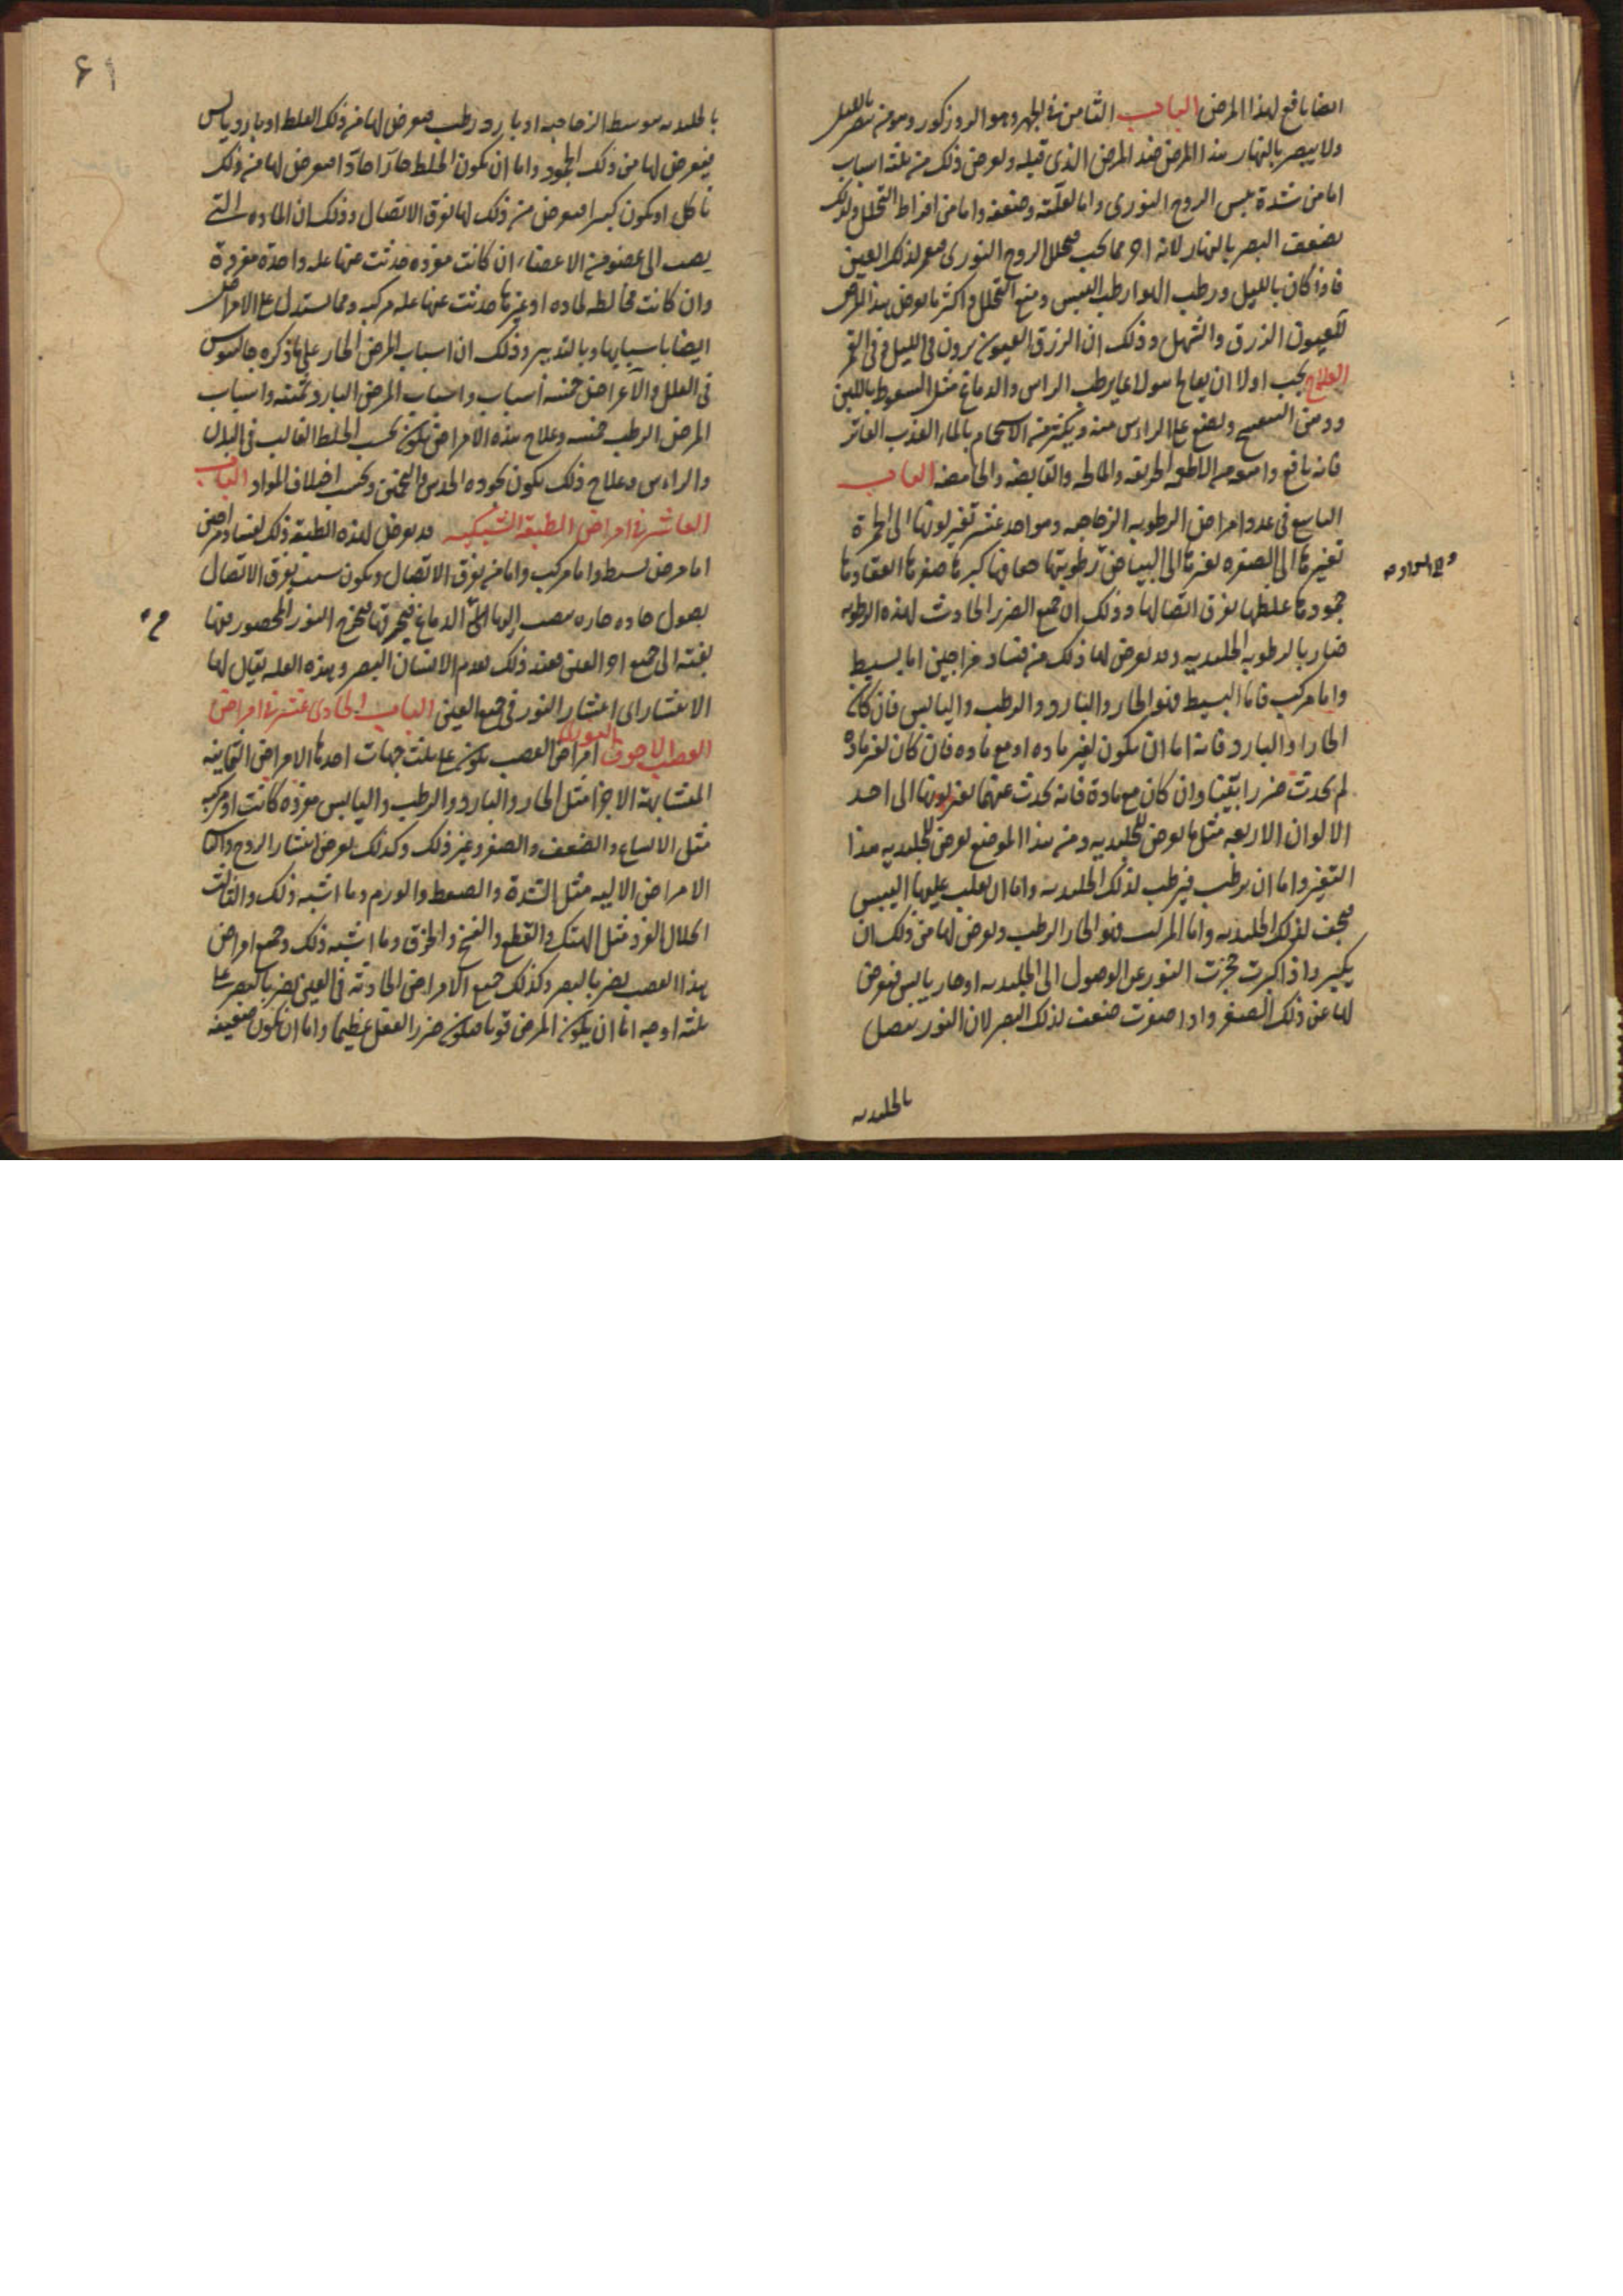 ايضا نافع لهذا المرض الباب الثامن في الجهر وهو الروزكور وهو من يبصر بالليل
ولا يبصر بالنهار هذا المرض ضد المرض الذي قبله ويعرض ذلك من ثلثة اسباب
اما من شدة يبس الروح النوري واما لعلته وضعفه واما من افراط التحلل ولذلك
يضعف البصر بالنهار لانه احر مما يجب فيحلل الروح النوري لذلك العين
فاذا كان بالليل ورطب الهوا رطب اليبس ومنع التحلل واكثر ما يعرض هذا المرض
للعيون الزرق والشهل وذلك ان الزرق العيون يرون في الليل وفي القمر
العلاج يجب اولا ان يعالج هولا بما يرطب الراس والدماغ مثل السعوط باللبن
ودهن البنفسج ويضع على الراس منه ويكثر من الاستحمام بالماء العذب الفاتر
فانه نافع وامنعه من الاطعمه الحريفه والمالحه والقابضه والحامضه الباب
التاسع في عدد امراض الرطوبه الزجاجيه وهو احد عشر تغير لونها الى الحمرة
تغيرها الى الصفره تغيرها الى البياض رطوبتها جفافها كبرها صغرها انعقادها
جمودها غلظها تفرق اتصالها وذلك ان جميع الضرر الحادث لهذه الرطوبه
ضار بالرطوبه الجليديه وقد يعرض لها ذلك من فساد مزاجين اما بسيط
واما مركب فاما البسيط فهو الحار والبارد والرطب واليابس فان كان
الحار او البارد فانه اما ان يكون بغير ماده او مع ماده فان كان بغير ماده
لم يحدث ضررا بتيتا وان كان مع مادة فانه يحدث عنهما تغير لونها الى احد
الالوان الاربعه مثل ما يعرض للجليديه ومن هذا الموضع يعرض للجليديه هذا
التغير واما ان يرطب فيرطب لذلك الجليديه واما ان يغلب عليها اليبس
فيجف لذلك الجليديه واما المركب فهو الحار الرطب ويعرض لها من ذلك ان
يكبر واذا كبرت حجزت النور عن الوصول الى الجليديه او حار يابس فيعرض
لها عن ذلك الصغر واذا صغرت ضعف لذلك البصر لان النور يتصل
بالجليديه
٦١
بالجليديه بتوسط الزجاجيه او بارد رطب فيعرض لها من ذلك الغلظ او بارد يابس
فيعرض لها من ذلك الجمود واما ان يكون الخلط حارا حادا فيعرض لها من ذلك
تاكل او يكون كثيرا فيعرض من ذلك لها تفرق الاتصال وذلك ان الماده التي
يصب الى عضو من الاعضاء ان كانت مفرده حدثت عنها عله واحدة مفردة
وان كانت مخالطه لماده او غيرها حدثت عنها عله مركبه ومما يستدل على الامراض
ايضا باسبابها وبالتدبير وذلك ان اسباب المرض الحار على ما ذكره جالينوس
في العلل والاعراض خمسه اسباب واسباب المرض البارد ثمنيه واسباب
المرض الرطب خمسه وعلاج هذه الامراض يكون بحسب الخلط الغالب في البدن
والراس وعلاج ذلك يكون بجوده الحدس والتخمين وبحسب اختلاف المواد الباب
العاشر في امراض الطبقة الشبكيه قد يعرض لهذه الطبقه ذلك لفساد مزاجين
اما مرض بسيط واما مركب واما من تفرق الاتصال ويكون سبب تفرق الاتصال
فضول حاده حاره تنصب اليها من الدماغ فيخرقها فيخرج النور المحصور فيها
بغتة الى جميع اجزاء العين فعند ذلك يعدم الانسان البصر وهذه العله يقال لها
الانتشار اي انتشار النور في جميع العين الباب الحادي عشر في امراض
العصب الاجوف امراض العصب يكون على ثلث جهات احدها الامراض الثمانيه
المتشابهة الاجزا مثل الحار والبارد والرطب واليابس مفرده كانت او مركبه
مثل الاتساع والضعف والصغر وغير ذلك وكذلك يعرض انتشار الروح والثا
الامراض الاليه مثل السدة والضغط والورم وما اشبه ذلك والثالث
انحلال الفرد مثل الهتك والقطع والفسخ والخرق وما اشبه ذلك وجميع امراض
هذا العصب يضر بالبصر وكذلك جميع الامراض الحادثة في العين يضر بالبصر على
ثلثه اوجه اما ان يكون المرض قويا فيكون ضرر الفعل عظيما واما ان يكون ضعيفه